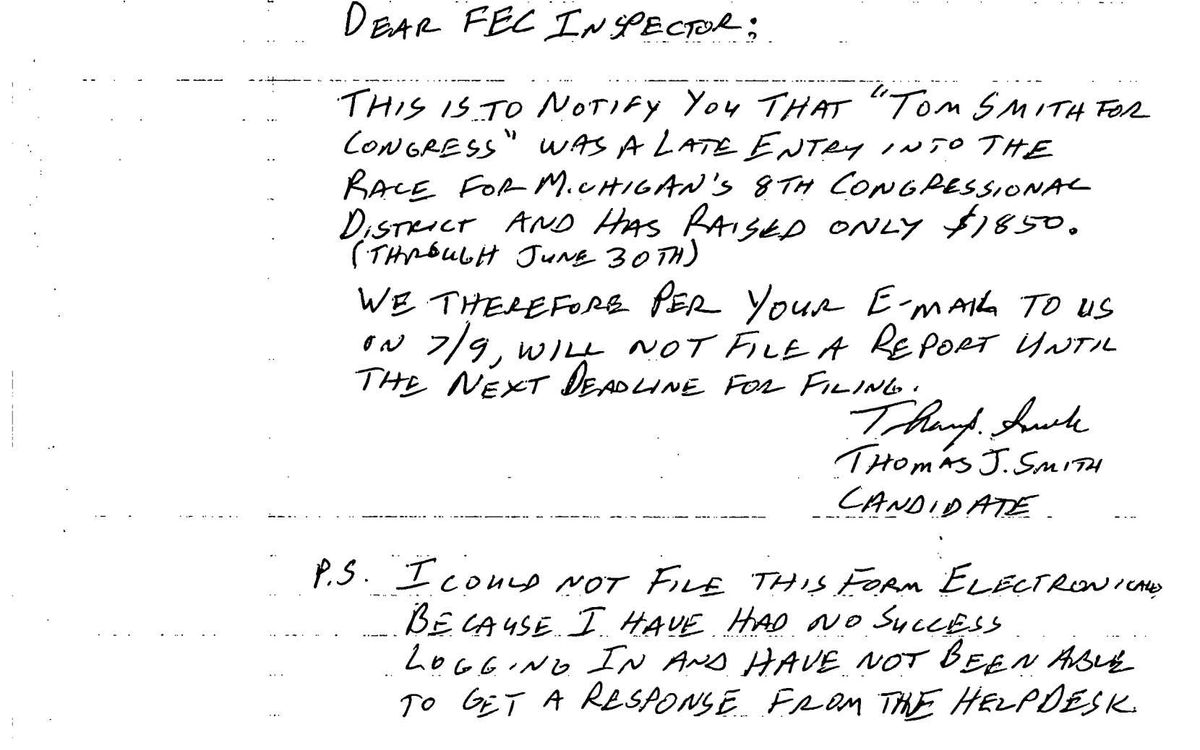 DEAR FEC INSPECTOR;
THIS IS TO NOTIFY YOU THAT "TOM SMITH FOR
CONGRESS" WAS A LATE ENTRY INTO THE
RACE FOR MICHIGAN'S 8TH CONGRESSIONAL
DISTRICT AND HAS RAISED ONLY $1850.
(THROUGH JUNE 30TH)
WE THEREFORE PER YOUR E-MAIL TO US
ON 7/9, WILL NOT FILE A REPORT UNTIL
THE NEXT DEADLINE FOR FILING.
THOMAS J. SMITH
CANDIDATE
P.S. I COULD NOT FILE THIS FORM ELECTRONICALLY
BECAUSE I HAVE HAD NO SUCCESS
LOGGING IN AND HAVE NOT BEEN ABLE
TO GET A RESPONSE FROM THE HELPDESK.